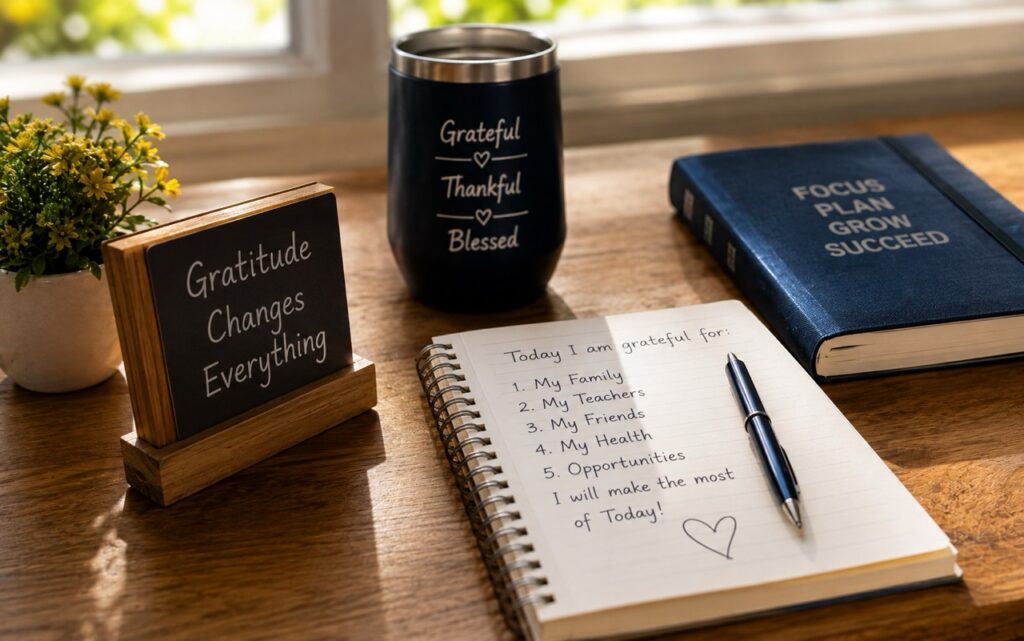 Grateful
Thankful
Blessed
Gratitude
Changes
Everything
FOCUS
PLAN
GROW
SUCCEED
Today I am grateful for:
1. My Family
2. My Teachers
3. My Friends
4. My Health
5. Opportunities
I will make the most
of Today!